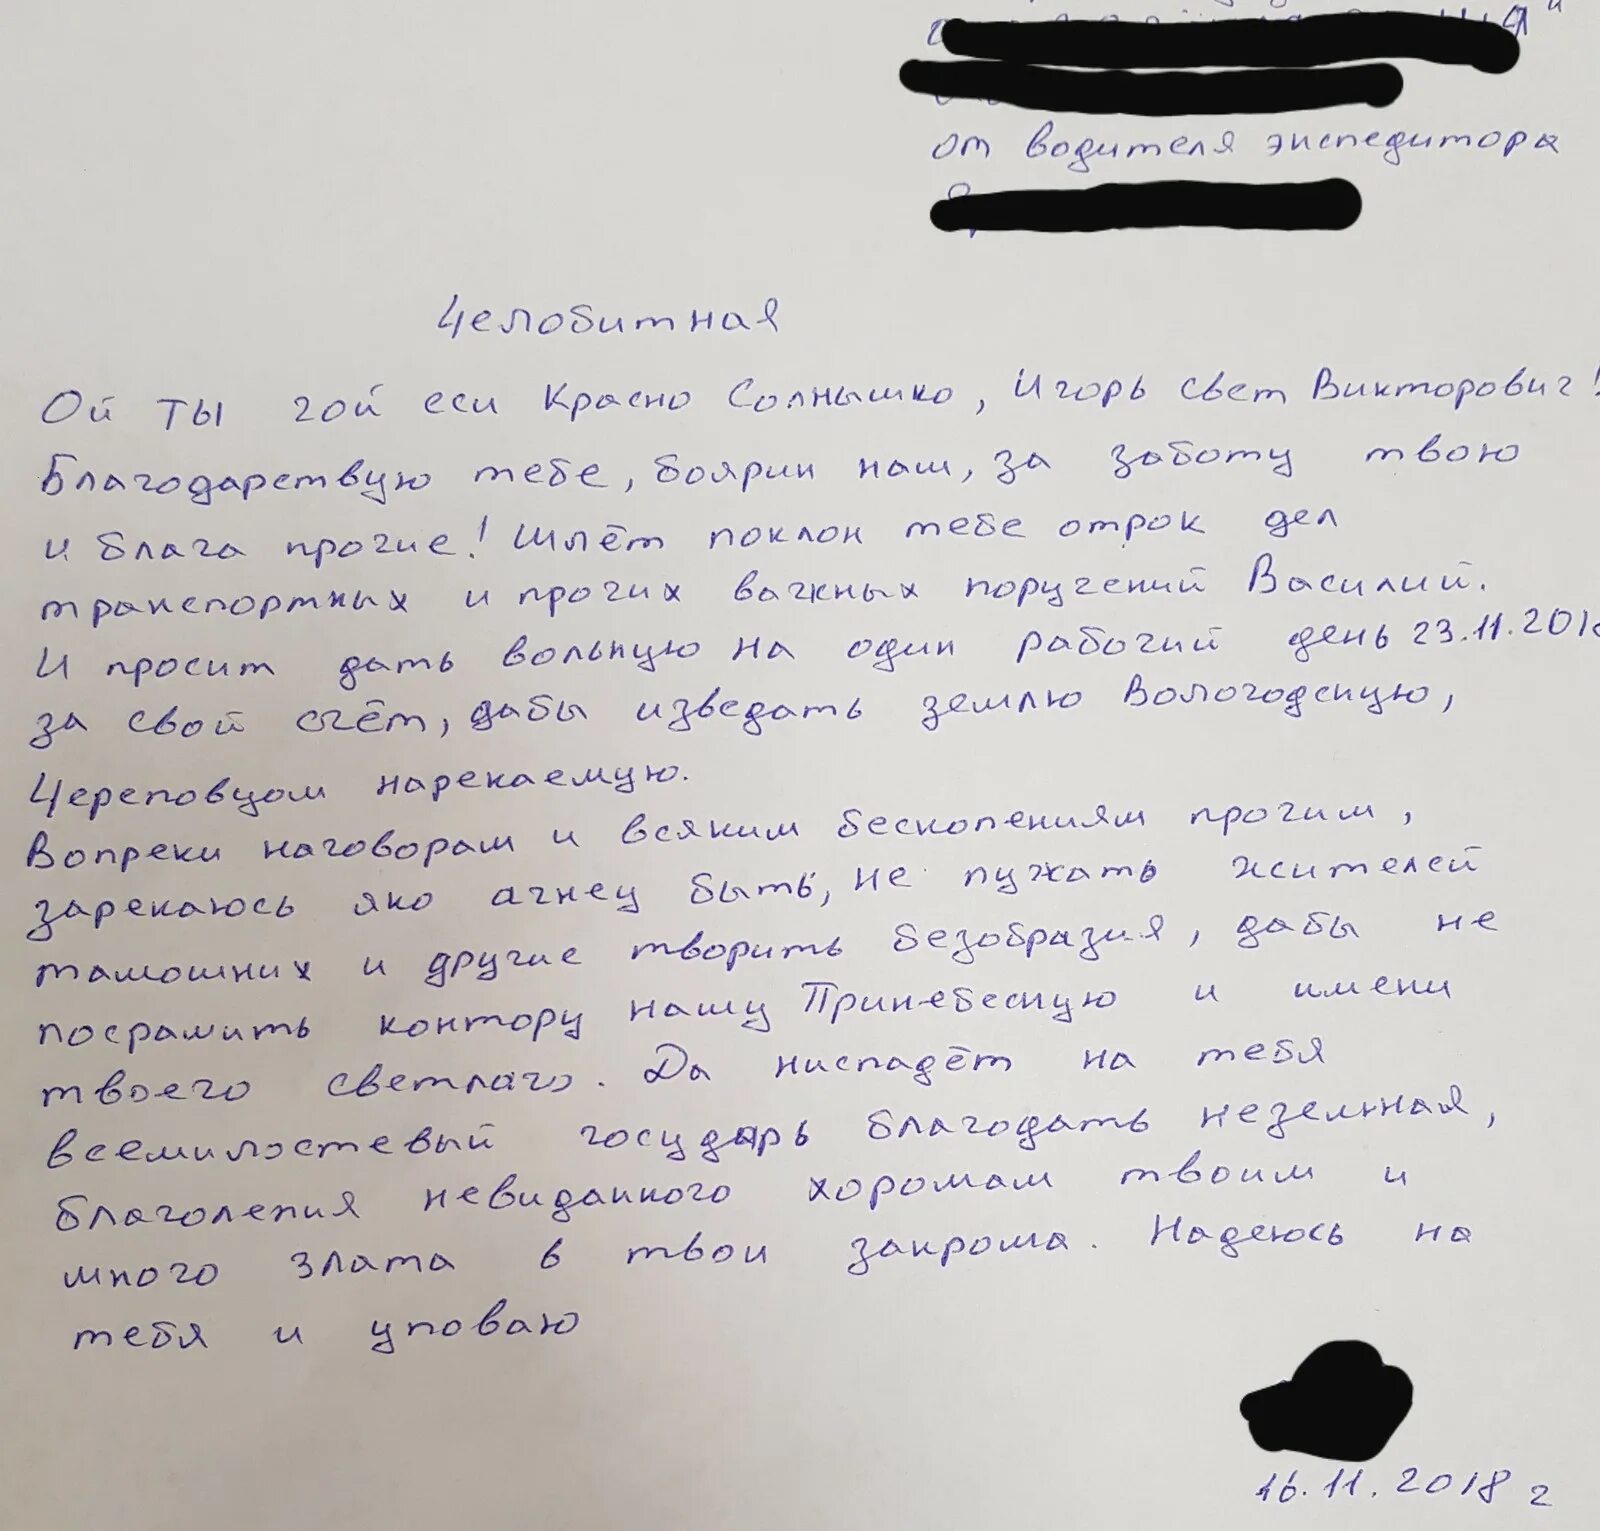 от водителя экспедитора
Челобитная
Ой ты гой еси Красно Солнышко, Игорь свет Викторович!
Благодарствую тебе, боярин наш, за заботу твою
и блага прочие! Шлёт поклон тебе отрок дел
транспортных и прочих важных поручений Василий.
И просит дать вольную на один рабочий день 23.11.2018
за свой счёт, дабы изведать землю Вологодскую,
Череповцом нарекаемую.
Вопреки наговорам и всяким бескопениям прочим,
зарекаюсь яко агнец быть, не пужать жителей
тамошних и другие творить безобразия, дабы не
посрамить контору нашу Принебесную и имени
твоего светлаго. Да ниспадёт на тебя
всемилостевый государь благодать неземная,
благолепия невиданного хоромам твоим и
много злата в твои закрома. Надеюсь на
тебя и уповаю
16.11.2018 г